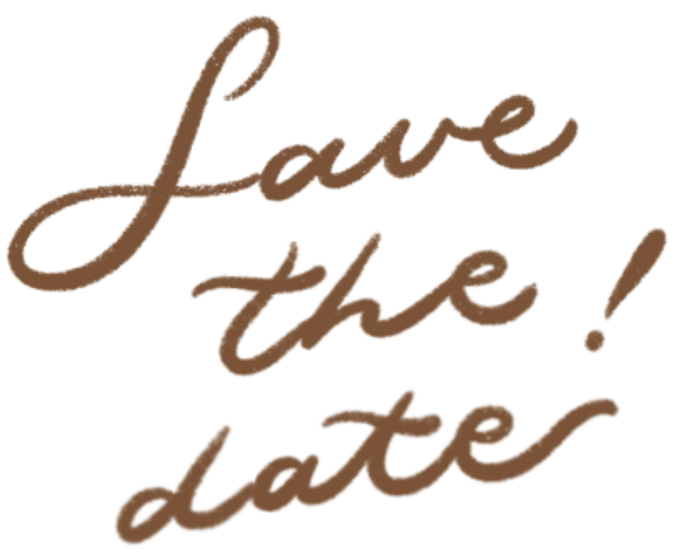 Save
the !
date